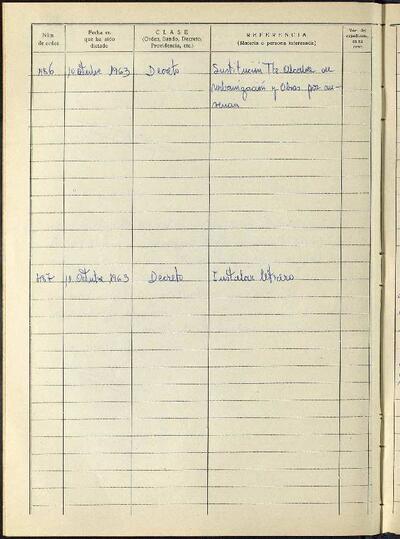 Núm. de orden
Fecha en que ha sido dictado
CLASE
(Orden, Bando, Decreto, Providencia, etc.)
REFERENCIA
(Materia o persona interesada)
486 10 Octubre 1963 Decreto Sustitución Tte Alcalde de
Urbanización y Obras por au-
sencia
487 10 Octubre 1963 Decreto Instalar letrero